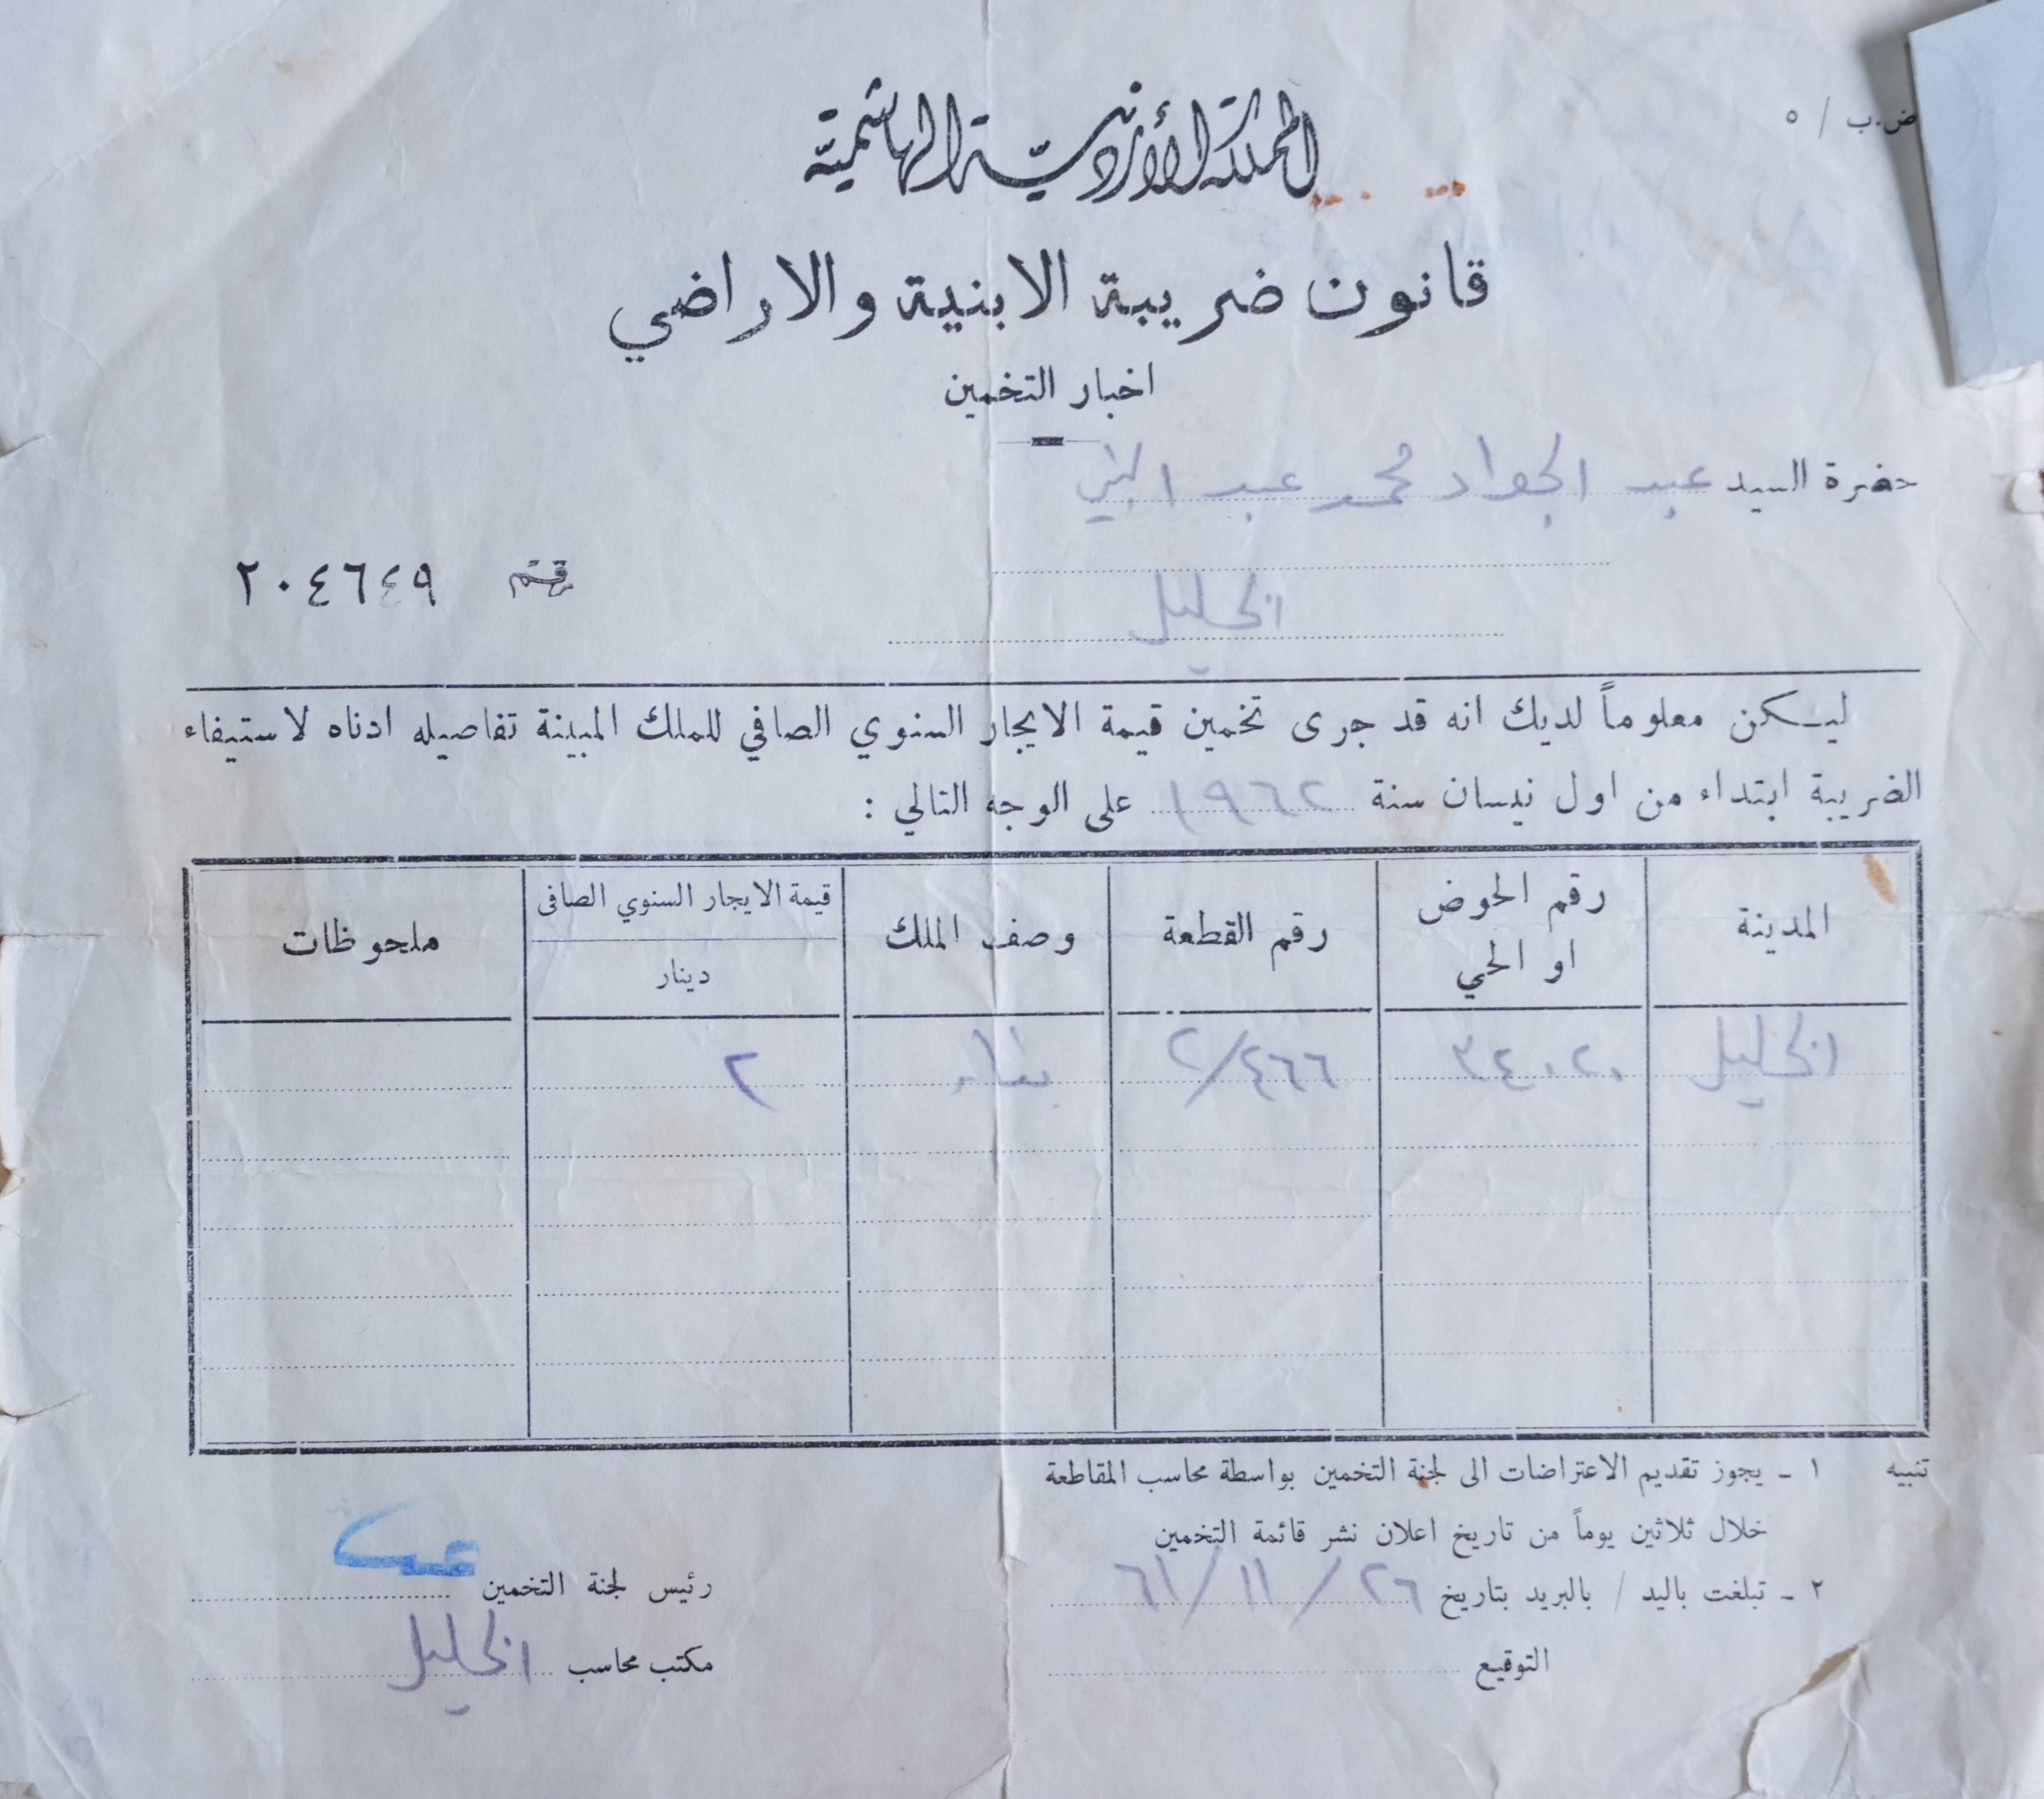 ض.ب / ٥
المملكة الأردنية الهاشمية
قانون ضريبة الابنية والاراضي
اخبار التخمين
حضرة السيد عبد الجواد محمد عبد النبي
الخليل
رقم ٢٠٤٦٤٩
ليكن معلوماً لديك انه قد جرى تخمين قيمة الايجار السنوي الصافي للملك المبينة تفاصيله ادناه لاستيفاء
الضريبة ابتداء من اول نيسان سنة ١٩٦٢ على الوجه التالي :
المدينة رقم الحوض او الحي رقم القطعة وصف الملك قيمة الايجار السنوي الصافى دينار ملحوظات
الخليل ٣٤٠٢٠ ٢/٤٦٦ بناء ٢
تنبيه ١ ـ يجوز تقديم الاعتراضات الى لجنة التخمين بواسطة محاسب المقاطعة
خلال ثلاثين يوماً من تاريخ اعلان نشر قائمة التخمين
٢ ـ تبلغت باليد / بالبريد بتاريخ ٢٦/١١/٦١
التوقيع
رئيس لجنة التخمين
مكتب محاسب الخليل